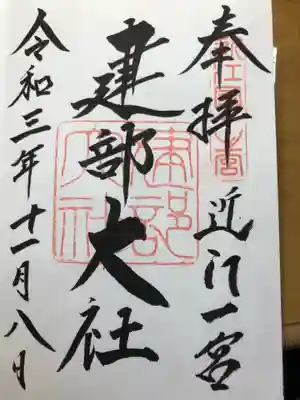 奉拝 近江一宮
建部大社
令和三年十一月八日
建部大社